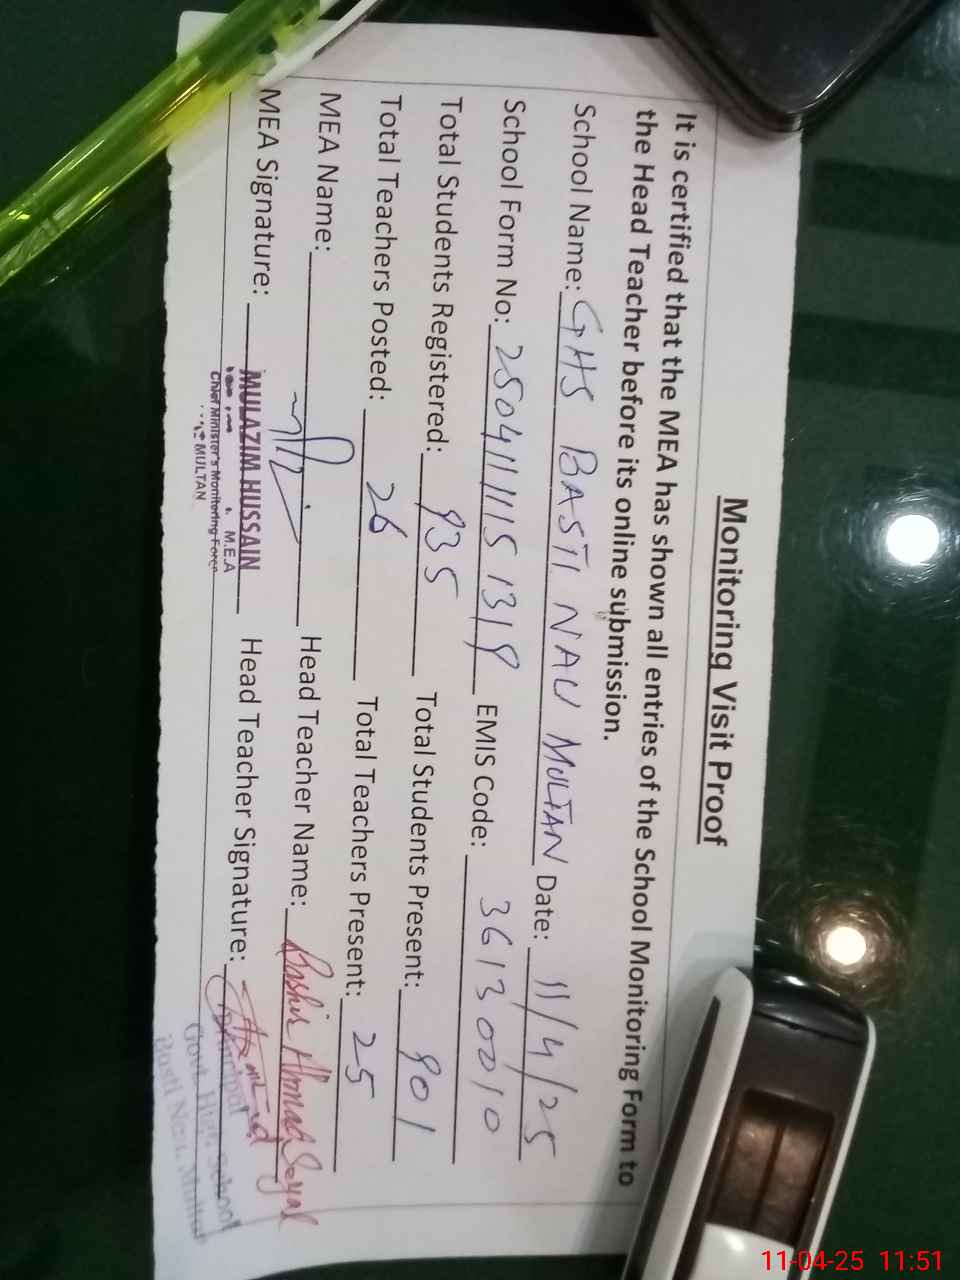 Monitoring Visit Proof
It is certified that the MEA has shown all entries of the School Monitoring Form to
the Head Teacher before its online submission.
School Name: GHS BASTI NAU MULTAN Date: 11/4/25
School Form No: 25041111151318 EMIS Code: 36130010
Total Students Registered: 935 Total Students Present: 901
Total Teachers Posted: 26 Total Teachers Present: 25
MEA Name: Head Teacher Name: Bashir Ahmad Sayal
MEA Signature: MULAZIM HUSSAIN Head Teacher Signature:
M.E.A
Chief Minister's Monitoring Force
MULTAN
Principal
Govt. High School
Basti Nau, Multan
11-04-25 11:51